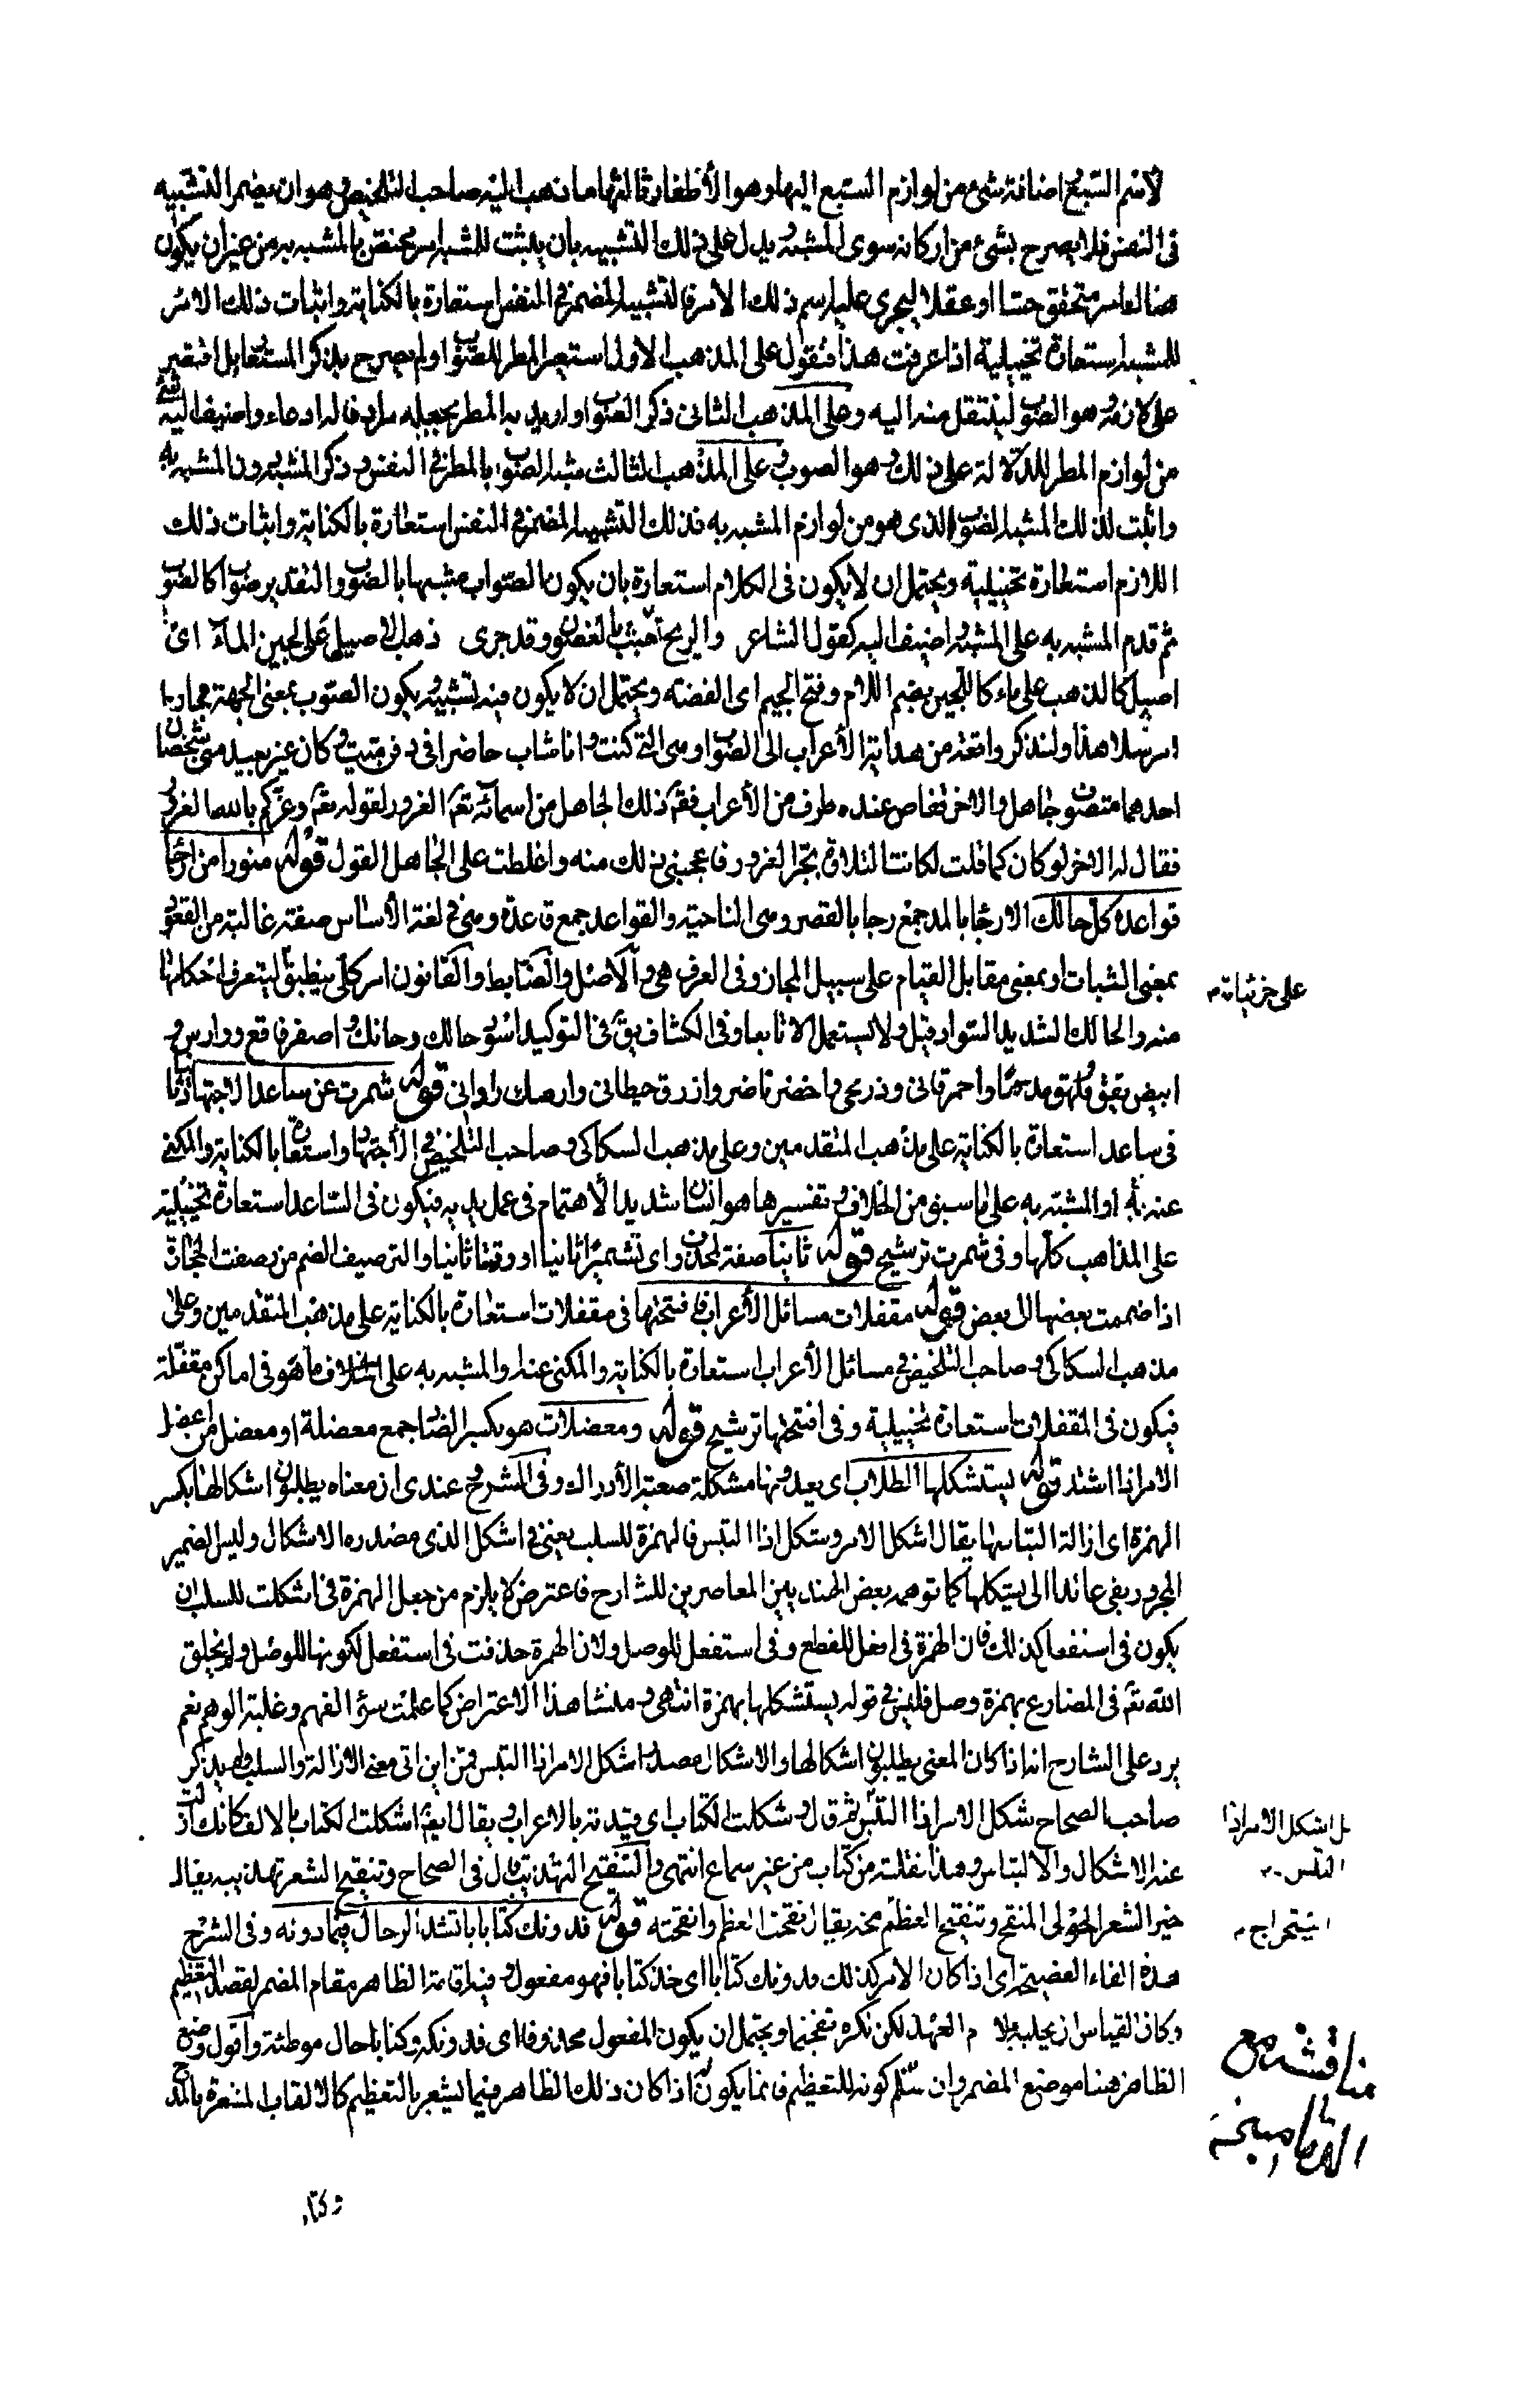 لاسم السبع اضافة شئ من لوازم السبع اليها وهو الأظفار ثالثها ما ذهب اليه صاحب التلخيص وهو ان يضمر التشبيه
فى النفس فلا يصرح بشئ من اركانه سوى المشبه ويدل على ذلك التشبيه بان يثبت للمشبه امر مختص بالمشبه به من غير ان يكون
هنا امر متحقق حسا او عقلا ليجرى عليه اسم ذلك الامر فالتشبيه المضمر فى النفس استعارة بالكناية واثبات ذلك الامر
للمشبه استعارة تخييلية اذا عرفت هذا فنقول على المذهب الاول استعير المطر للصواب ولم يصرح بذكر المستعار بل اقتصر
على لازمه وهو الصوب لينتقل منه اليه وعلى المذهب الثانى ذكر الصواب واريد به المطر بجعله مرادفا له ادعاء واضيف اليه شئ
من لوازم المطر للدلالة على ذلك وهو الصوب وعلى المذهب الثالث شبه الصواب بالمطر فى النفس وذكر المشبه دون المشبه به
واثبت لذلك المشبه الصوب الذى هو من لوازم المشبه به فذلك التشبيه المضمر فى النفس استعارة بالكناية واثبات ذلك
اللازم استعارة تخييلية ويحتمل ان لا يكون فى الكلام استعارة بان يكون الصواب مشبها بالصوب والتقدير صوابا كالصوب
ثم قدم المشبه به على المشبه واضيف اليه كقول الشاعر والريح تعبث بالغصون وقد جرى ذهب الاصيل على لجين الماء اى
اصيل كالذهب على ماء كاللجين بضم اللام وفتح الجيم اى الفضة ويحتمل ان لا يكون فيه تشبيه ويكون الصوب بمعنى الجهة مجازا
مرسلا هذا ولنذكر واقعة من هداية الأعراب الى الصواب وهى انى كنت وانا شاب حاضرا فى وكان غير بعيد منى شخصان
احدهما متصوف جاهل والاخر عنده طرف من الأعراب فقال ذلك الجاهل من اسمائه تعالى الغرور لقوله تعالى وغركم بالله الغرور
فقال له الاخر لو كان كما قلت لكانت التلاوة بجر الغرور فاعجبنى ذلك منه واغلظت على الجاهل القول قوله منورا من ارجاء
قواعده كل حالك الارجاء بالمد جمع رجا بالقصر وهى الناحية والقواعد جمع قاعدة وهى فى لغة الأساس صفة غالبة من القعود
بمعنى الثبات او بمعنى مقابل القيام على سبيل المجاز وفى العرف هى والأصل والضابط والقانون امر كلى ينطبق ليتعرف احكامها
على جزئياته م
منه والحالك الشديد السواد قيل ولا يستعمل الا تابعا وفى الكشاف يقال فى التوكيد اسود حالك وحانك واصفر فاقع ووارس و
ابيض يقق ولهق واحمر قانى وذريحى واخضر ناضر وازرق خطبانى وارمك رادانى قوله شمرت عن ساعد الاجتهاد ثانيا
فى ساعد استعارة بالكناية على مذهب المتقدمين وعلى مذهب السكاكى وصاحب التلخيص فى الأجتهاد استعارة بالكناية والمكنى
عنه به او المشبه به على ما سبق من الخلاف فى تفسيرها هو انسان شديد الأهتمام فى عمل يديه فيكون فى الساعد استعارة تخييلية
على المذاهب كلها وفى شمرت ترشيح قوله ثانيا صفة لمحذوف اى تشميرا ثانيا او وقتا ثانيا والترصيف الضم من رصفت الحجارة
اذا ضممت بعضها الى بعض قوله مقفلات مسائل الأعراب وافتتحها فى مقفلات استعارة بالكناية على مذهب المتقدمين وعلى
مذهب السكاكى وصاحب التلخيص فى مسائل الأعراب استعارة بالكناية والمكنى عنه او المشبه به على الخلاف ما هو فى اماكن مقفلة
فيكون فى المقفلات استعارة تخييلية وفى افتتحها ترشيح قوله ومعضلات هو بكسر الضاد جمع معضلة او معضل من اعضل
الامر اذا اشتد قوله يستشكلها الطلاب اى يعدونها مشكلة صعبة الأدراك وفى الشرح وعندى ان معناه يطلبون اشكالها بكسر
الهمزة اى ازالة التباسها يقال اشكل الامر وشكل اذا التبس فالهمزة للسلب يعنى فى اشكل الذى مصدره الاشكال وليس الضمير
المجرور بفى عائدا الى يستشكلها كما توهمه بعض الهنديين المعاصرين للشارح فاعترض لا يلزم من جعل الهمزة فى اشكلت للسلب ان
يكون فى استفعل كذلك فان الهمزة فى افعل للقطع وفى استفعل للوصل ولان الهمزة حذفت فى استفعل لكونها للوصل ولم يخلق
الله تعالى فى المضارع بهمزة وصل فليس فى قوله يستشكلها بهمزة انتهى ومنشا هذا الاعتراض كما علمت سوء الفهم وغلبة الوهم نعم
يرد على الشارح انه اذا كان المعنى يطلبون اشكالها والاشكال مصدر اشكل الامر اذا التبس فمن اين اتى معنى الازالة والسلب ولم يذكر
صاحب الصحاح شكل الامر اذا التبس ثم قال وشكلت الكتاب اى قيدته بالاعراب ويقال ايضا اشكلت الكتاب بالالف كانك ازلت
بل اشكل الامر اذا
التبس م
عنه الاشكال والالتباس وهذا نقلته من كتاب من غير سماع انتهى والتنقيح التهذيب قال فى الصحاح وتنقيح الشعر تهذيبه يقال
خير الشعر الحولى المنقح وتنقيح العظم مخه يقال نقحت العظم وانتقحته قوله فدونك كتابا تشد الرحال فيما دونه وفى الشرح
استخراج م
هذه الفاء الفصيحة اى اذا كان الامر كذلك فدونك كتابا اى خذ كتابا فهو مفعول وفيه اقامة الظاهر مقام المضمر لقصد التعظيم
وكان القياس ان يجلبه بلام العهد لكن نكره تفخيما ويحتمل ان يكون المفعول محذوفا اى فدونكه وكتابا حال موطئة واقول وضع
الظاهر هنا موضع المضمر وان سلم كونه للتعظيم فانما يكون اذا كان ذلك الظاهر فيما يشعر بالتعظيم كالالقاب المشعرة بالمدح
مناقشه مع